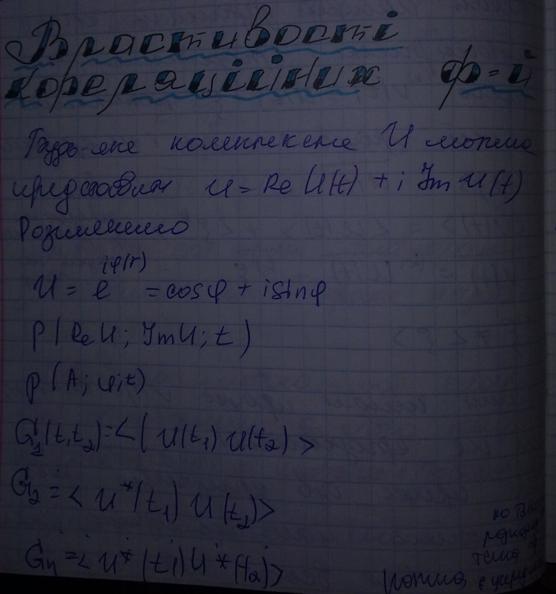 Властивості
кореляційних ф-й
Будь-яке комплексне U можна
представити U = Re U(t) + i Im U(t)
Розглянемо
U = e^{iφ(t)} = cosφ + i sinφ
P(ReU; ImU; t)
P(A; φ; t)
G_1(t_1 t_2) = <(U(t_1) U(t_2)>
G_2 = <U*(t_1) U(t_2)>
G_n = <U*(t_1) U*(t_2)>